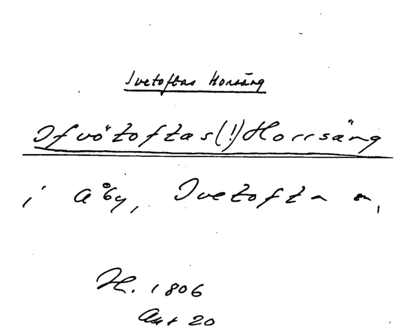 Ivetoftas Horsäng
Ifvötoftas(!) Horrsäng
i Åby, Ivetofta s,
H. 1806
Akt 20